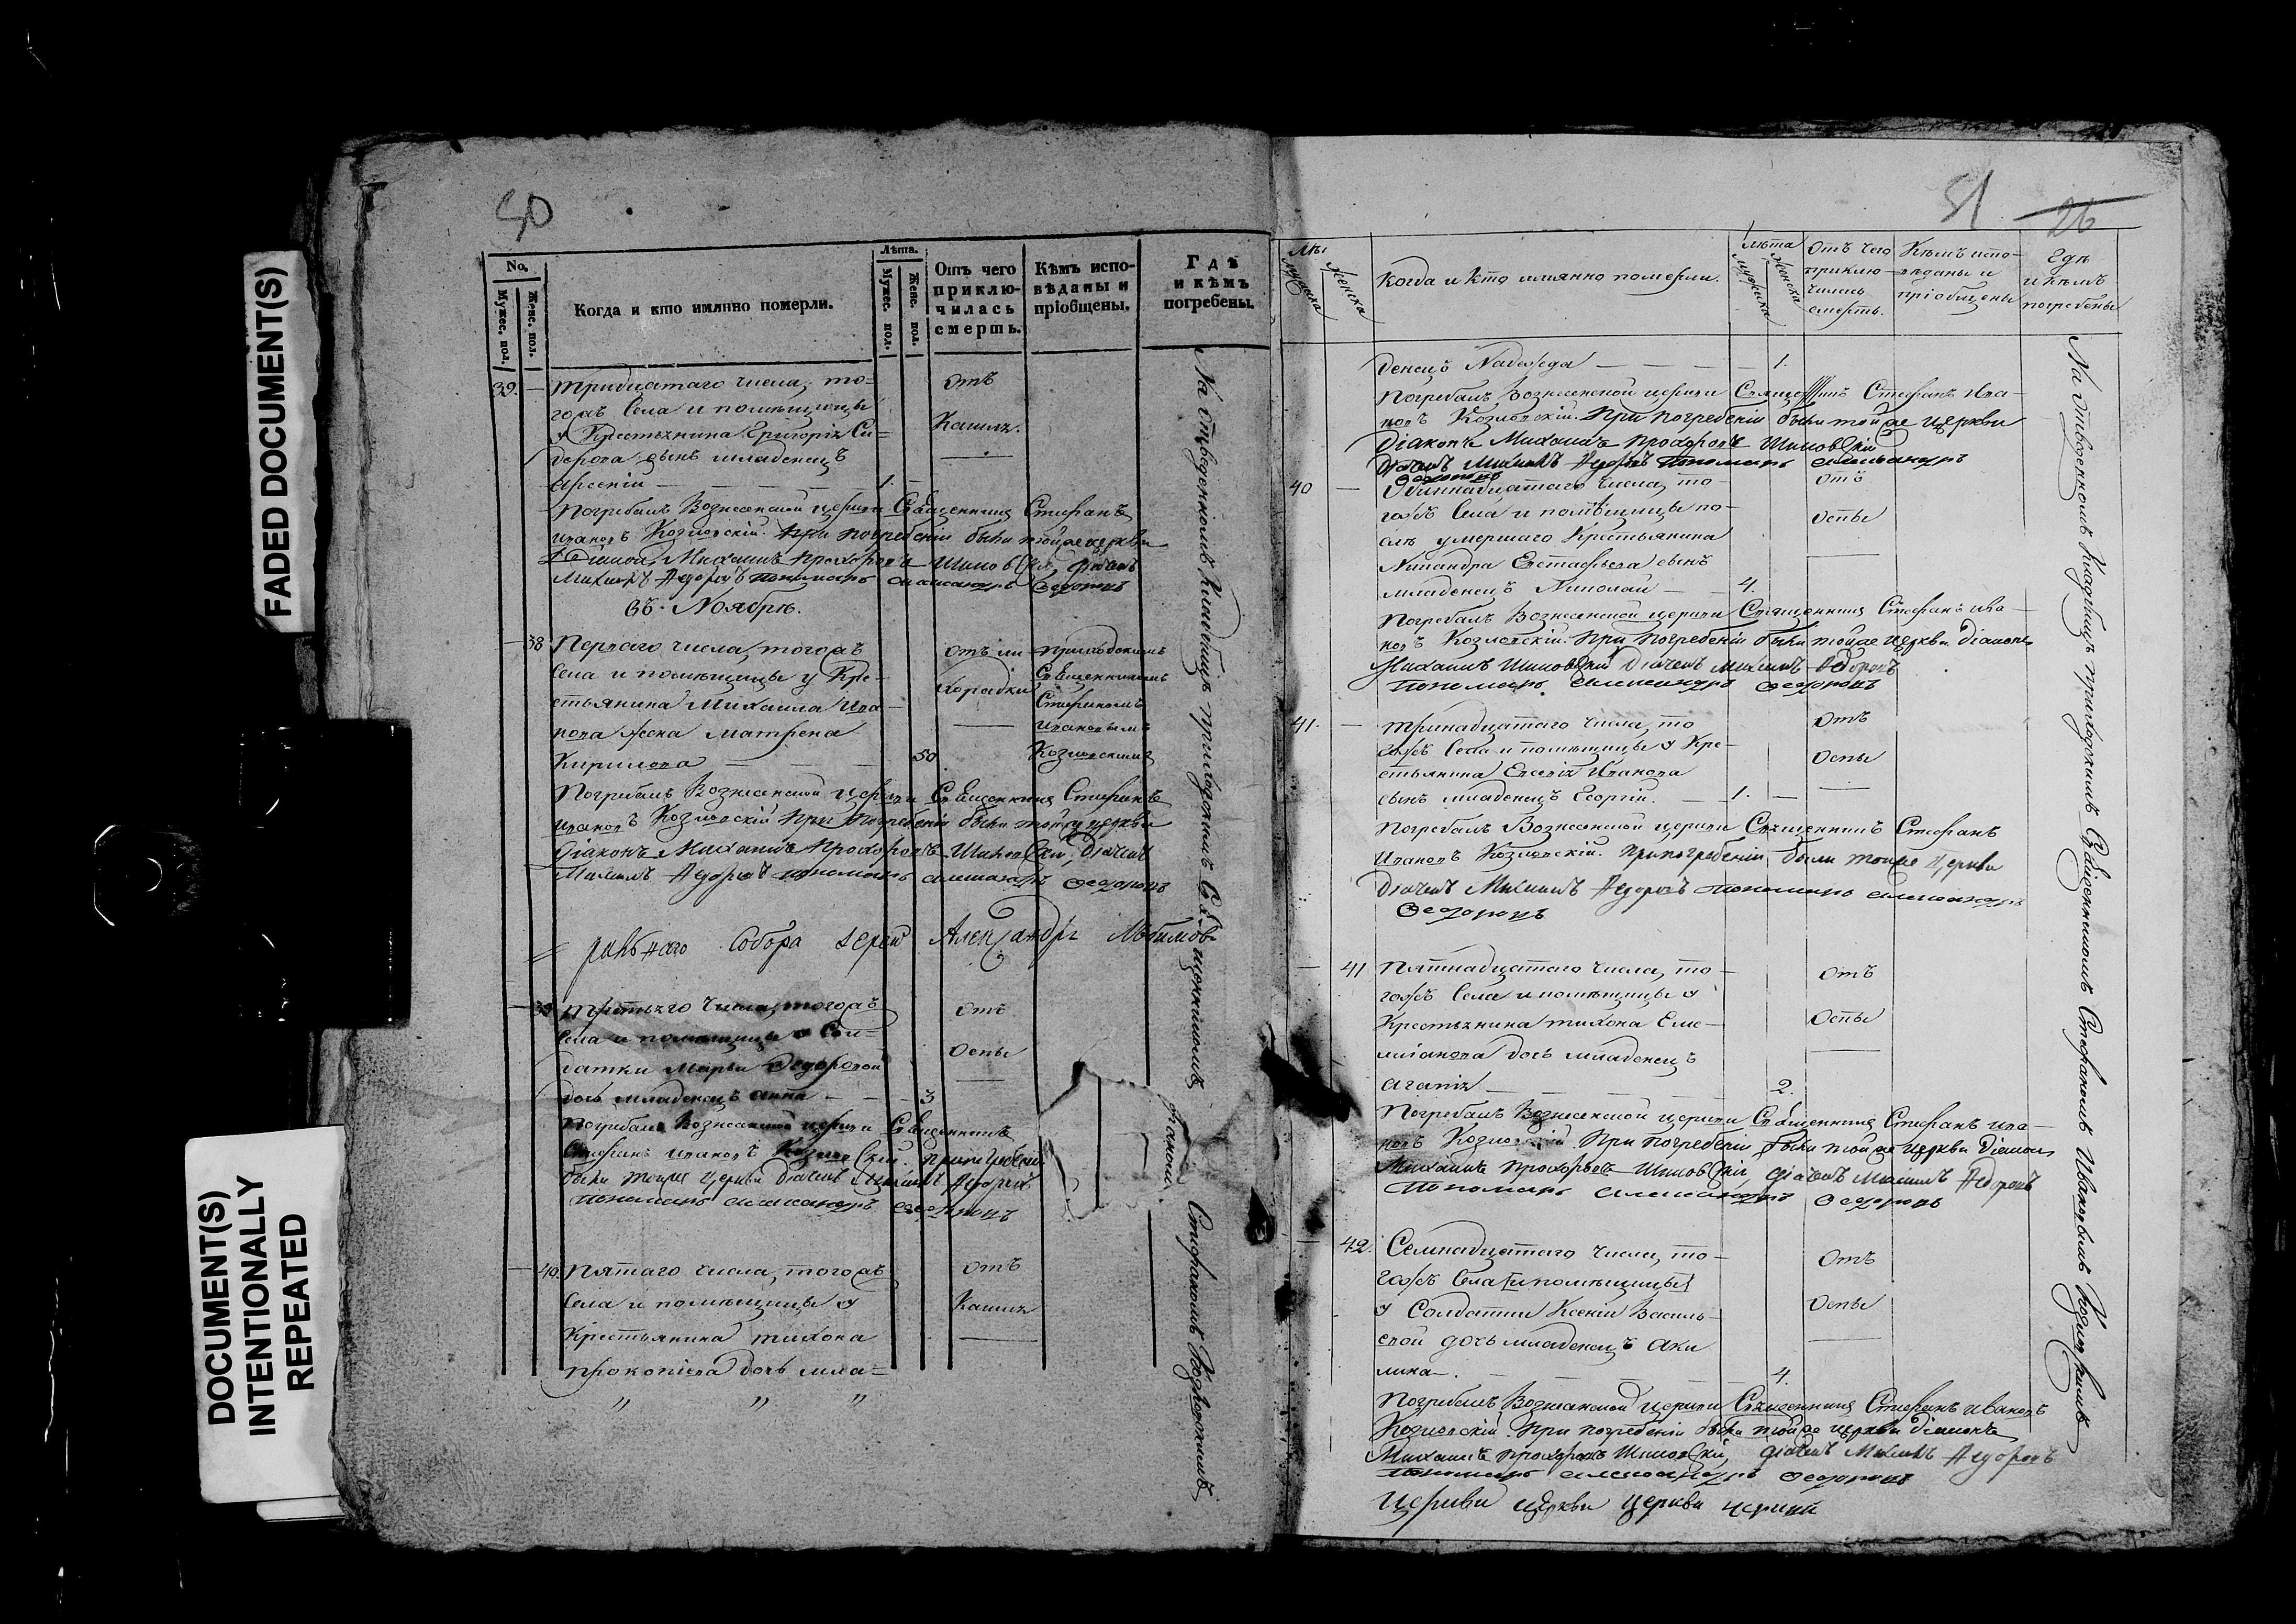 FADED DOCUMENT(S)
DOCUMENT(S)
INTENTIONALLY
REPEATED
50
No.
Мужес. пол.
Женс. пол.
Когда и кто имянно померли.
Лѣта.
Мужес. пол.
Женс. пол.
Отъ чего
приклю-
чилась
смерть.
Кѣмъ испо-
вѣданы и
пріобщены.
Гдѣ
и кѣмъ
погребены.
39. — Тридцатаго числа, то=
гожъ Села и помѣщицы
у Крестьянина Григорія Си=
дорова сынъ младенецъ
Арсеній — 1. —
Отъ
Кашля.
Погребалъ Вознесенской церкви Священникъ Стефанъ
Ивановъ Козловскій. При погребеніи были тойже церкви
Михаилъ Прохоровъ
Михаилъ Федоровъ пономарь Александръ Федоровъ
въ Ноябрѣ.
— 38 Перваго числа, тогожъ
Села и помѣщицы у Кре-
стьянина Михаила Ива-
нова жена Матрена
Кирилова — 50
Отъ ли
хорадки
приходскимъ
Священникомъ
Стефаномъ
Ивановымъ
Козловскимъ
Погребалъ Вознесенской церкви Священникъ Стефанъ
Ивановъ Козловскій при погребеніи были тойже церкви
Діаконъ Михаилъ Прохоровъ дьячекъ
Михаилъ Федоровъ пономарь Александръ Федоровъ
Собора Іерей Александръ
— 39 Третьяго числа, тогожъ
Села и помѣщицы у Сол=
датки Марьи Федоровой
дочь младенецъ Анна — 3
Отъ
Оспы
Погребалъ Вознесенской церкви Священникъ
Стефанъ Ивановъ Козловскій. При погребеніи
были тойже церкви дьячекъ Михаилъ Федоровъ
пономарь Александръ Федоровъ
— 40. Пятаго числа, тогожъ
Села и помѣщицы у
Крестьянина Тихона
Прокопіева дочь мла=
Отъ
Кашля
На отведенномъ кладбищѣ приходскимъ Священникомъ Стефаномъ Козловскимъ
51
26
Когда и кто имянно померли.
лѣта
Отъ чего
приклю-
чилась
смерть.
Кѣмъ испо-
вѣданы и
пріобщены
Гдѣ
и кѣмъ
погребены
денецъ Надежда — 1.
Погребалъ Вознесенской церкви Священникъ Стефанъ Ива-
новъ Козловскій. При погребеніи были тойже церкви
Діаконъ Михаилъ Прохоровъ
Дьячекъ Михаилъ Федоровъ пономарь Александръ
Федоровъ
40 — Одиннадцатаго числа, то-
гожъ Села и помѣщицы по-
слѣ умершаго Крестьянина
Никандра Евстафьева сынъ
младенецъ Николай — 4.
Отъ
Оспы
Погребалъ Вознесенской церкви Священникъ Стефанъ Ива-
новъ Козловскій. При погребеніи были тойже церкви Діаконъ
Михаилъ дьячекъ Михаилъ Федоровъ
пономарь Александръ Федоровъ
41. — Тринадцатаго числа, то
гожъ Села и помѣщицы у Кре-
стьянина Евсевія Иванова
сынъ младенецъ Георгій. — 1. —
Отъ
Оспы
Погребалъ Вознесенской церкви Священникъ Стефанъ
Ивановъ Козловскій. При погребеніи были тойже церкви
дьячекъ Михаилъ Федоровъ пономарь Александръ
Федоровъ
— 41 Пятнадцатаго числа, то-
гожъ Села и помѣщицы у
Крестьянина Тихона Еме-
ліанова дочь младенецъ
Агапія — 2.
Отъ
Оспы
Погребалъ Вознесенской церкви Священникъ Стефанъ Ива-
новъ Козловскій. При погребеніи были тойже церкви Діаконъ
Михаилъ Прохоровъ дьячекъ Михаилъ Федоровъ
пономарь Александръ Федоровъ
— 42. Семнадцатаго числа, то-
гожъ Села и помѣщицы
у Солдатки Ксеніи Василь-
евой дочь младенецъ Аки
лина — 4.
Отъ
Оспы
Погребалъ Вознесенской церкви Священникъ Стефанъ Ивановъ
Козловскій. При погребеніи были тойже церкви діаконъ
Михаилъ Прохоровъ дьячекъ Михаилъ Федоровъ
пономарь Александръ Федоровъ
Церкви церкви церкви церкви
На отведенномъ кладбищѣ приходскимъ Священникомъ Стефаномъ Ивановымъ Козловскимъ